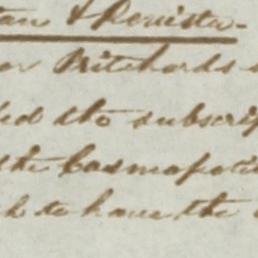 & Revista-
Pritchards
the subscrip
the Cosmopoli
to have the